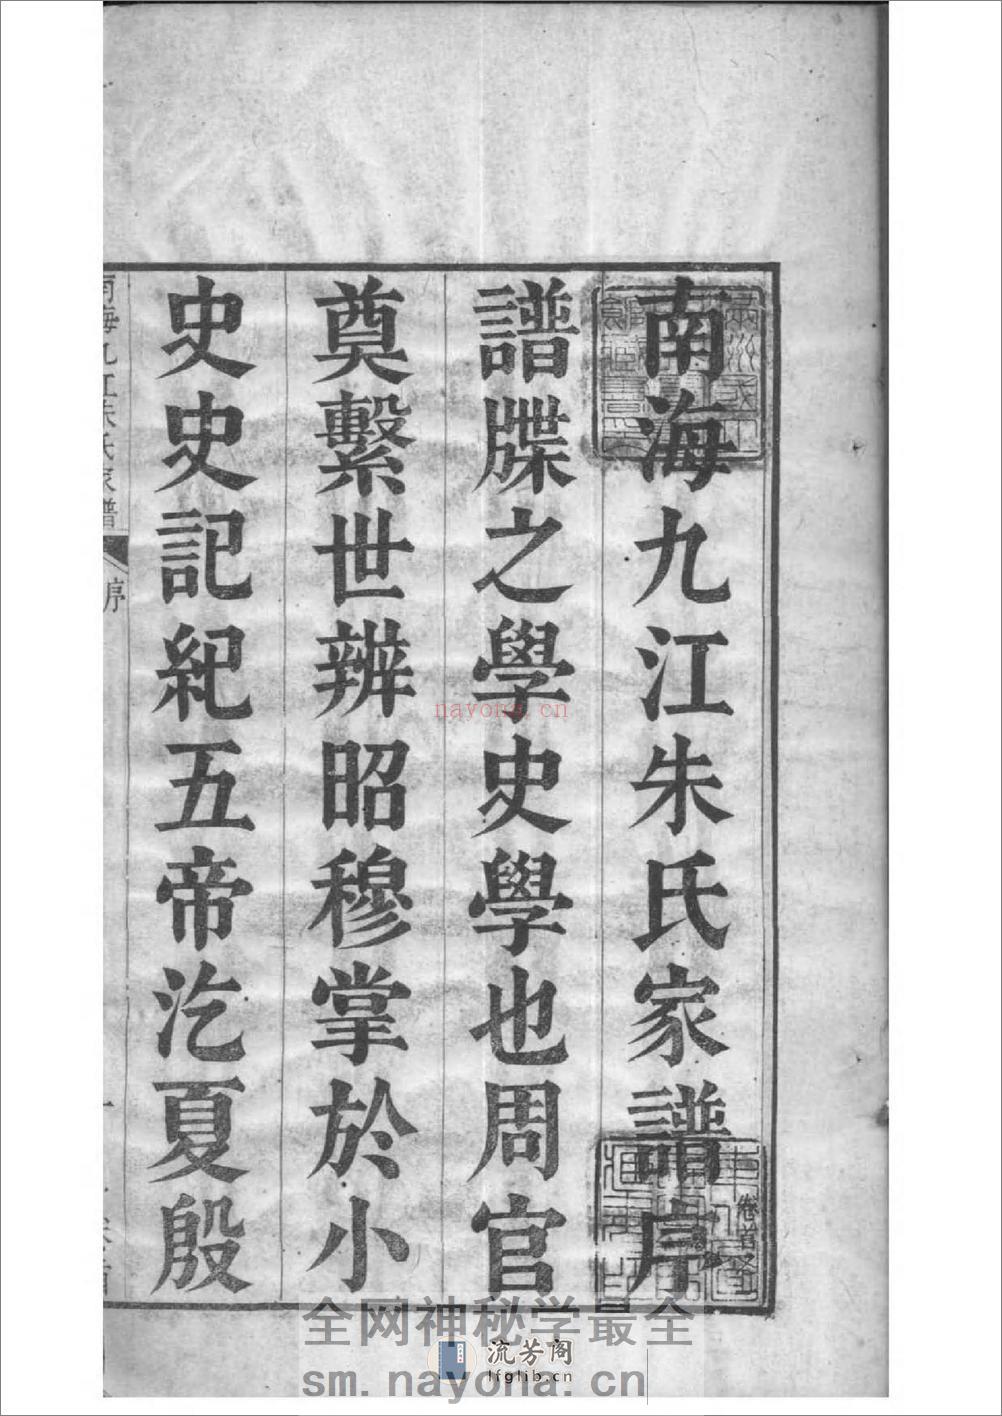 南海九江朱氏家譜序
卷首
譜牒之學史學也周官
奠繫世辨昭穆掌於小
史史記紀五帝汔夏殷
南海九江朱氏家譜
序
nayona.cn
全网神秘学最全
流芳阁
lfglib.cn
sm.nayona.cn